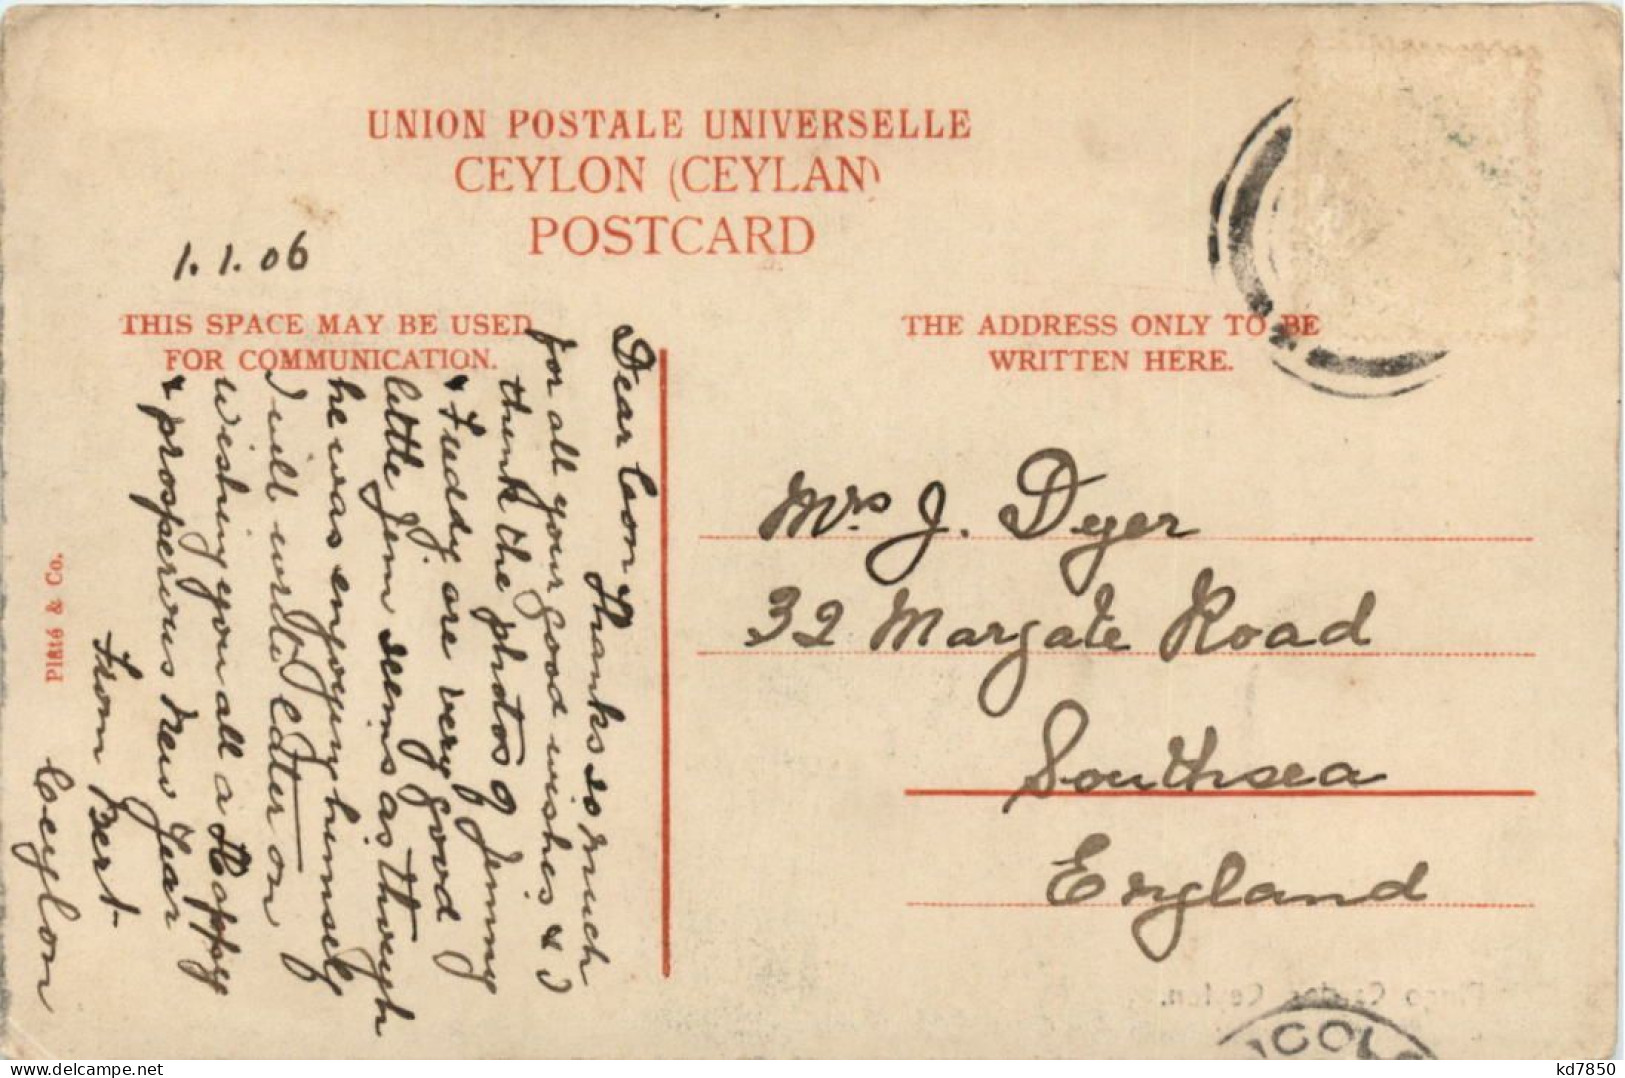 UNION POSTALE UNIVERSELLE
CEYLON (CEYLAN)
POSTCARD
1.1.06
THIS SPACE MAY BE USED
FOR COMMUNICATION.
THE ADDRESS ONLY TO BE
WRITTEN HERE.
Dear Con
Thanks so much
for all your good wishes & I
think the photos of Jenny
& Freddy are very good
little Jim seems as though
he was enjoying himself
I will write letter on
wishing you all a Happy
& prosperous New Year
From Bert
Ceylon
Mrs J. Dyer
32 Margate Road
Southsea
England
Plâté & Co.
delcampe.net
kd7850